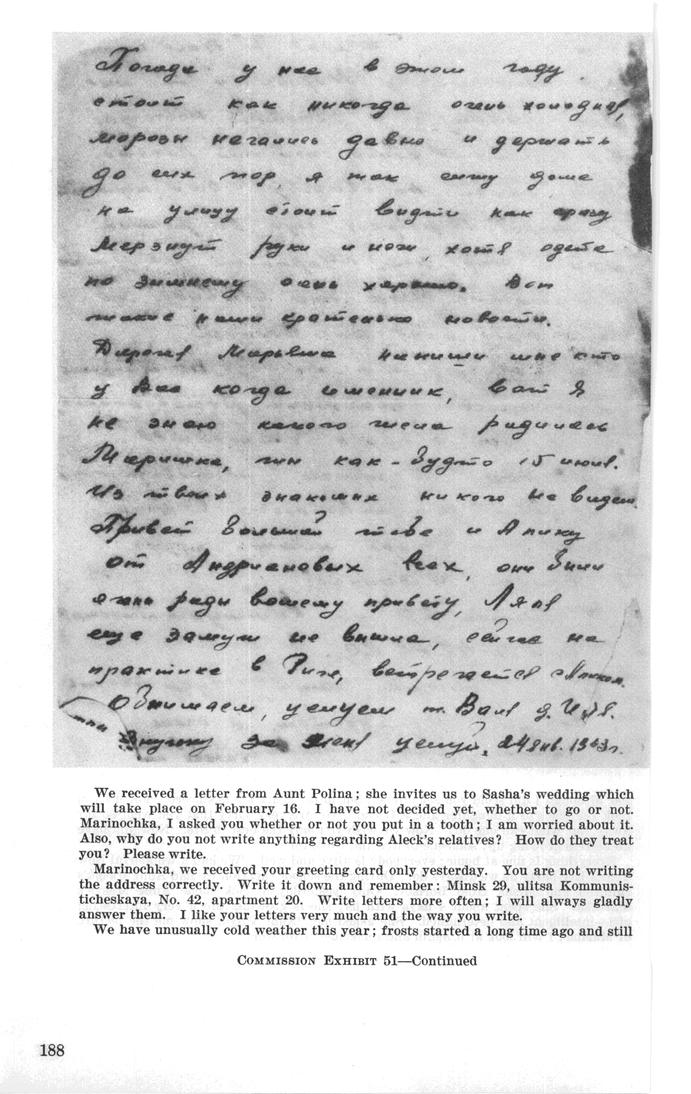 Погода у нас в этом году
стоит как никогда очень холодная,
морозы начались давно и держать
до сих пор, я так сижу дома
на улицу стоит видти как сразу
мерзнут руки и ноги, хотя одета
по зимнему очень хорошо. Вот
такие наши кратенько новости.
Дорогая Марьяша напиши мне кто
у Вас когда именник, вот я
не знаю какого числа родилась
Маришка, чи как-будто 15 июня.
Из твоих знакомых никого не видем.
Привет большой тебе и Алику
от Андриановых всех, они были
очень рады вашему привету, Ляля
еще замуж не вышла, сейчас на
практике в Риге, встречается с
Обнимаем, целуем т. Валя д. Иля.
Внучку за меня целуй, 24 янв. 1963 г.
We received a letter from Aunt Polina; she invites us to Sasha's wedding which
will take place on February 16. I have not decided yet, whether to go or not.
Marinochka, I asked you whether or not you put in a tooth; I am worried about it.
Also, why do you not write anything regarding Aleck's relatives? How do they treat
you? Please write.
Marinochka, we received your greeting card only yesterday. You are not writing
the address correctly. Write it down and remember: Minsk 29, ulitsa Kommunis-
ticheskaya, No. 42, apartment 20. Write letters more often; I will always gladly
answer them. I like your letters very much and the way you write.
We have unusually cold weather this year; frosts started a long time ago and still
COMMISSION EXHIBIT 51—Continued
188